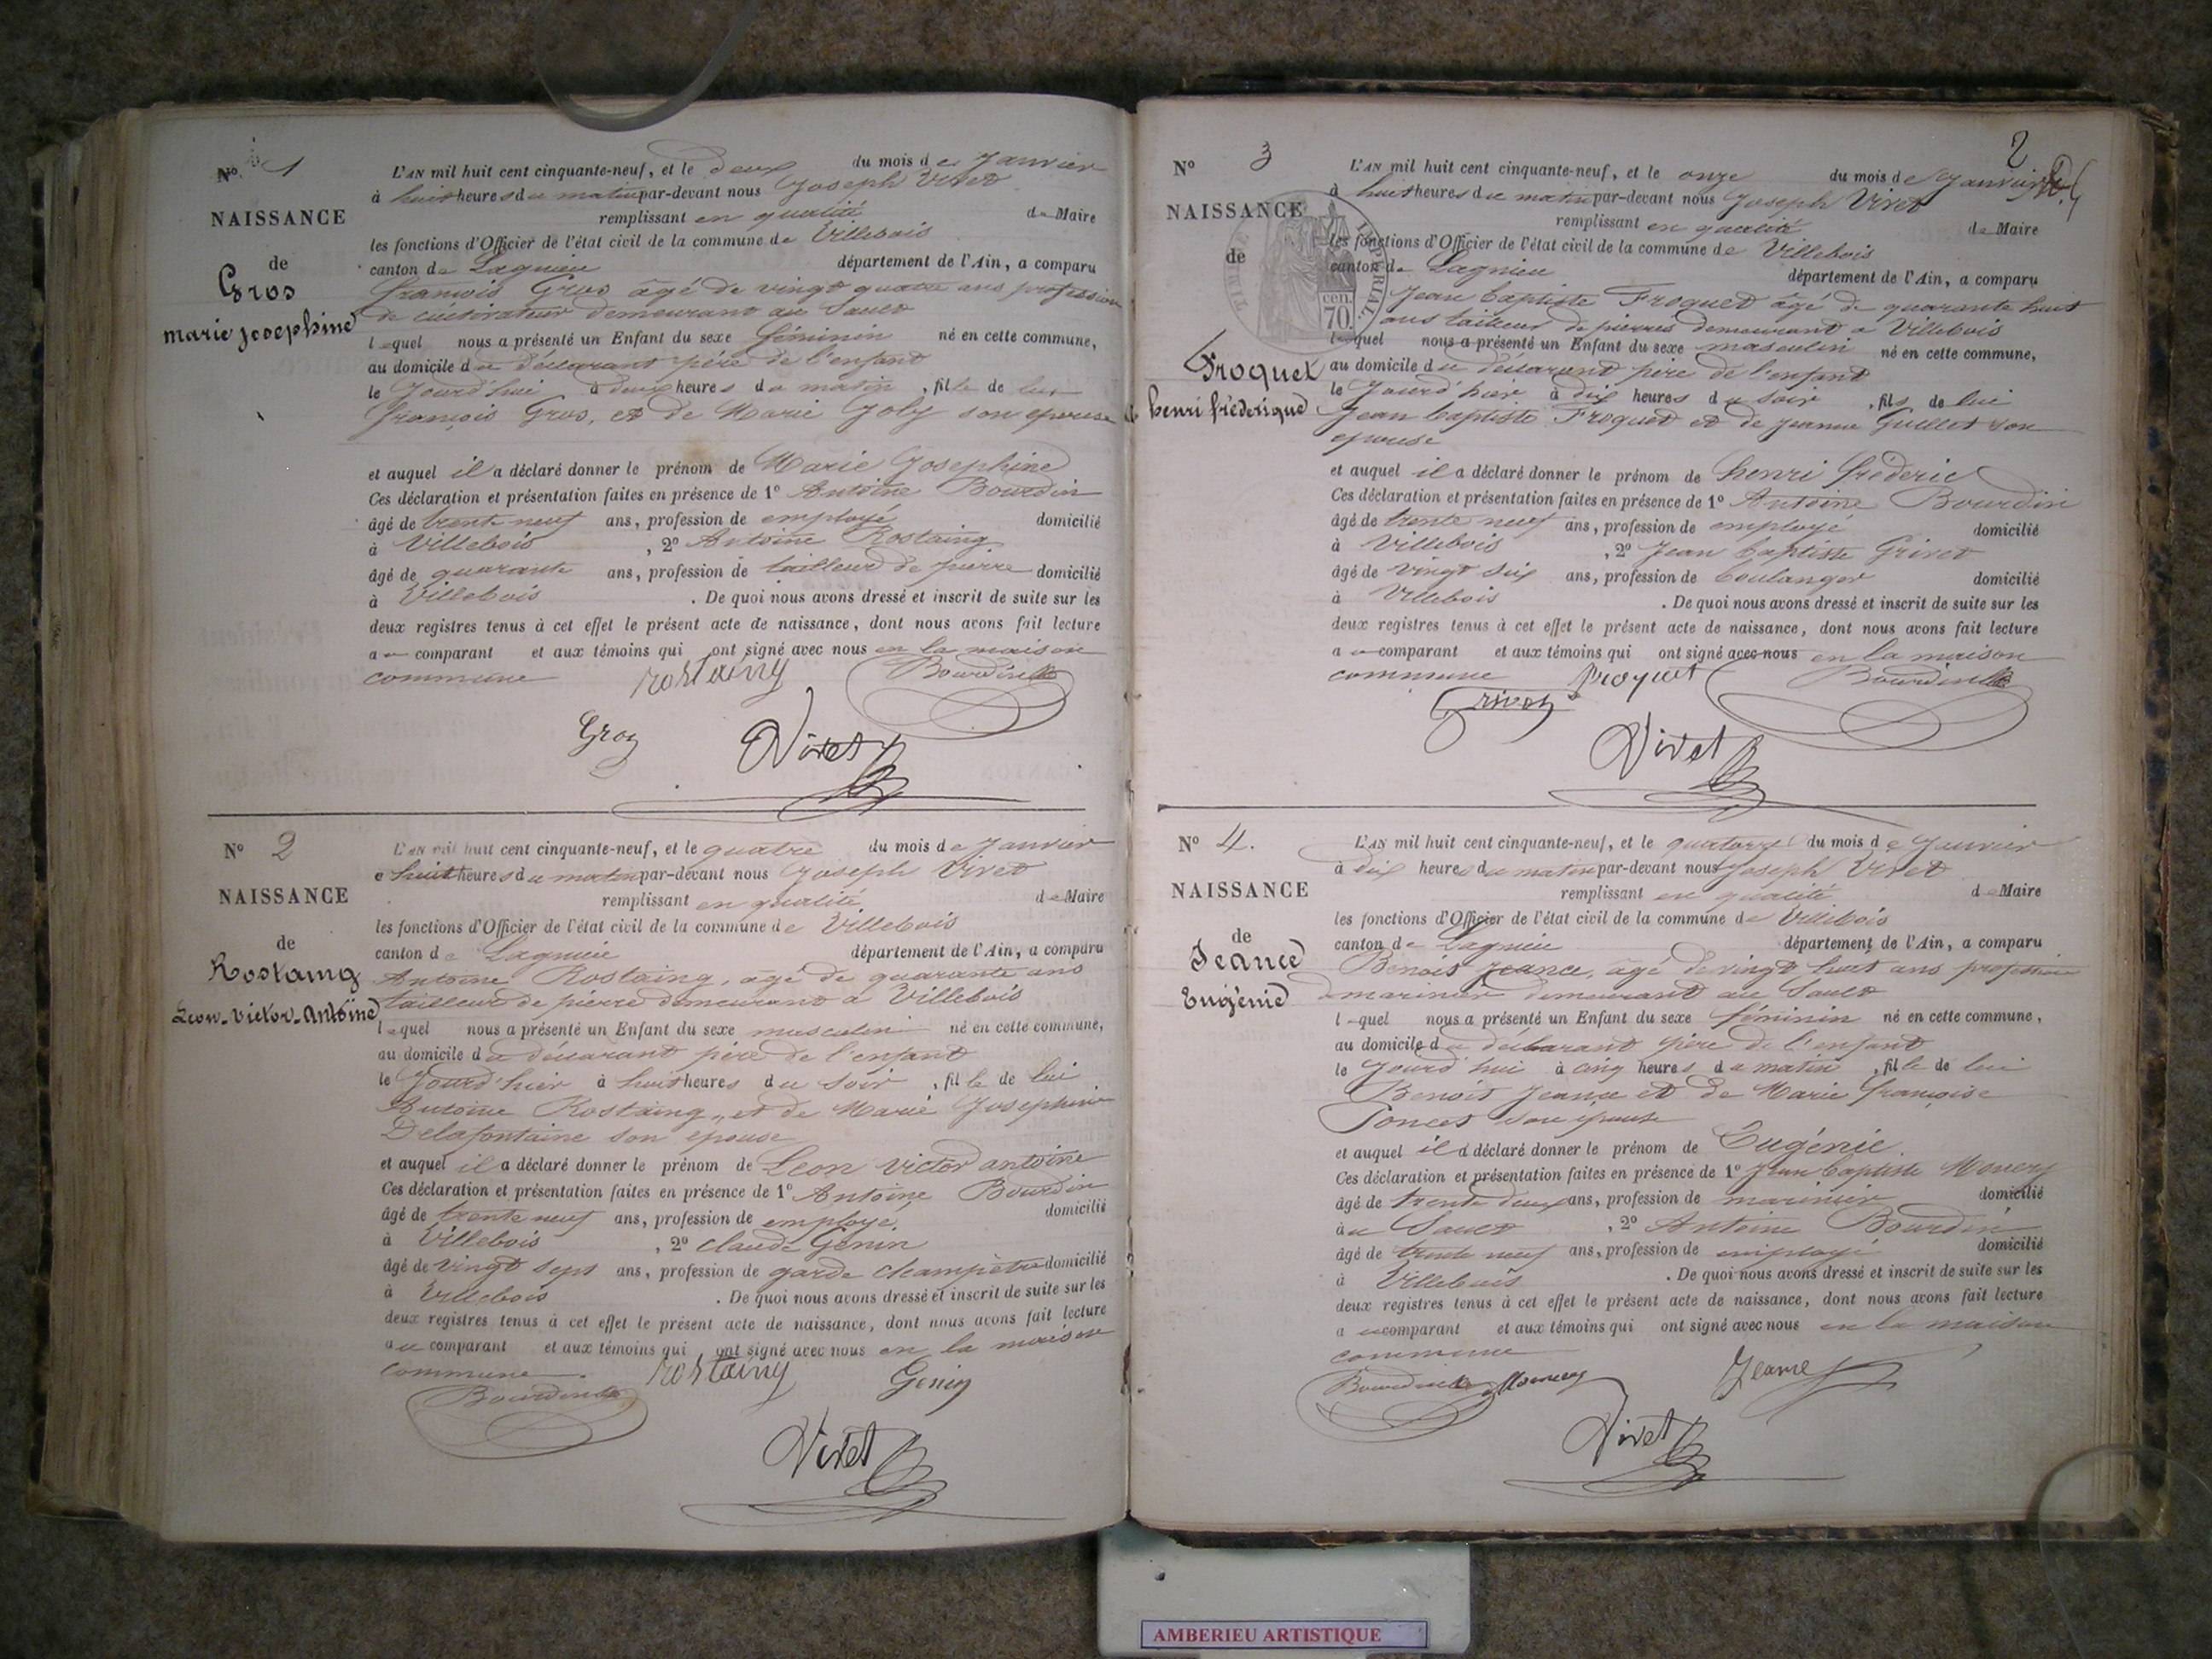 Nº 1
NAISSANCE
de
Gros
marie josephine
L'AN mil huit cent cinquante-neuf, et le deux du mois de Janvier
à huit heures du matin par-devant nous Joseph Vivet
remplissant en qualité de Maire
les fonctions d'Officier de l'état civil de la commune de Villebois
canton de Lagnieu département de l'Ain, a comparu
françois Gros âgé de vingt quatre ans profession
de cultivateur demeurant au Sault
lequel nous a présenté un Enfant du sexe féminin né en cette commune,
au domicile du déclarant père de l'enfant
le Jourd'hui à deux heures du matin, fille de lui
françois Gros, et de Marie Joly son epouse
et auquel il a déclaré donner le prénom de Marie Josephine
Ces déclaration et présentation faites en présence de 1º Antoine Bourdin
âgé de trente neuf ans, profession de employé domicilié
à Villebois, 2º Antoine Rostaing
âgé de quarante ans, profession de tailleur de pierre domicilié
à Villebois. De quoi nous avons dressé et inscrit de suite sur les
deux registres tenus à cet effet le présent acte de naissance, dont nous avons fait lecture
au comparant et aux témoins qui ont signé avec nous en la maison
commune
rostaing Bourdin
Gros Vivet
Nº 2
NAISSANCE
de
Rostaing
Leon-Victor-Antoine
L'AN mil huit cent cinquante-neuf, et le quatre du mois de Janvier
à huit heures du matin par-devant nous Joseph Vivet
remplissant en qualité de Maire
les fonctions d'Officier de l'état civil de la commune de Villebois
canton de Lagnieu département de l'Ain, a comparu
Antoine Rostaing, âgé de quarante ans
tailleur de pierre demeurant à Villebois
lequel nous a présenté un Enfant du sexe masculin né en cette commune,
au domicile du déclarant père de l'enfant
le Jourd'hier à huit heures du soir, fil le de lui
Antoine Rostaing, et de Marie Josephine
Delafontaine son epouse
et auquel il a déclaré donner le prénom de Leon victor antoine
Ces déclaration et présentation faites en présence de 1º Antoine Bourdin
âgé de trente neuf ans, profession de employé domicilié
à Villebois, 2º claude Genin
âgé de vingt sept ans, profession de garde champêtre domicilié
à Villebois. De quoi nous avons dressé et inscrit de suite sur les
deux registres tenus à cet effet le présent acte de naissance, dont nous avons fait lecture
au comparant et aux témoins qui ont signé avec nous en la maison
commune.
rostaing Genin
Bourdin
Vivet
2
Nº 3
NAISSANCE
de
Froquet
henri fréderique
TIMBRE IMPERIAL
cen.
70.
L'AN mil huit cent cinquante-neuf, et le onze du mois de Janvier
à huit heures du matin par-devant nous Joseph Vivet
remplissant en qualité de Maire
les fonctions d'Officier de l'état civil de la commune de Villebois
canton de Lagnieu département de l'Ain, a comparu
Jean baptiste Froquet âgé de quarante huit
ans tailleur de pierres demeurant à Villebois
lequel nous a présenté un Enfant du sexe masculin né en cette commune,
au domicile du déclarant père de l'enfant
le Jourd'hier à dix heures du soir, fils de lui
Jean baptiste Froquet et de Jeanne Guillet son
epouse
et auquel il a déclaré donner le prénom de henri fréderic
Ces déclaration et présentation faites en présence de 1º Antoine Bourdin
âgé de trente neuf ans, profession de employé domicilié
à Villebois, 2º Jean baptiste Grivet
âgé de vingt six ans, profession de boulanger domicilié
à Villebois. De quoi nous avons dressé et inscrit de suite sur les
deux registres tenus à cet effet le présent acte de naissance, dont nous avons fait lecture
au comparant et aux témoins qui ont signé avec nous en la maison
commune froquet Bourdin
Grivet
Vivet
Nº 4.
NAISSANCE
de
Jeance
Eugénie
L'AN mil huit cent cinquante-neuf, et le quatorze du mois de Janvier
à dix heures du matin par-devant nous Joseph Vivet
remplissant en qualité de Maire
les fonctions d'Officier de l'état civil de la commune de Villebois
canton de Lagnieu département de l'Ain, a comparu
Benoit Jeance, âgé de vingt huit ans profession
de marinier demeurant au Sault
lequel nous a présenté un Enfant du sexe féminin né en cette commune,
au domicile du déclarant père de l'enfant
le Jourd'hui à cinq heures du matin, fille de lui
Benoit Jeance et de Marie françoise
Poncet son épouse
et auquel il a déclaré donner le prénom de Eugénie
Ces déclaration et présentation faites en présence de 1º Jean baptiste Monery
âgé de trente deux ans, profession de marinier domicilié
au Sault, 2º Antoine Bourdin
âgé de trente neuf ans, profession de employé domicilié
à Villebois. De quoi nous avons dressé et inscrit de suite sur les
deux registres tenus à cet effet le présent acte de naissance, dont nous avons fait lecture
au comparant et aux témoins qui ont signé avec nous en la maison
commune
Bourdin Monery Jeance
Vivet
AMBERIEU ARTISTIQUE